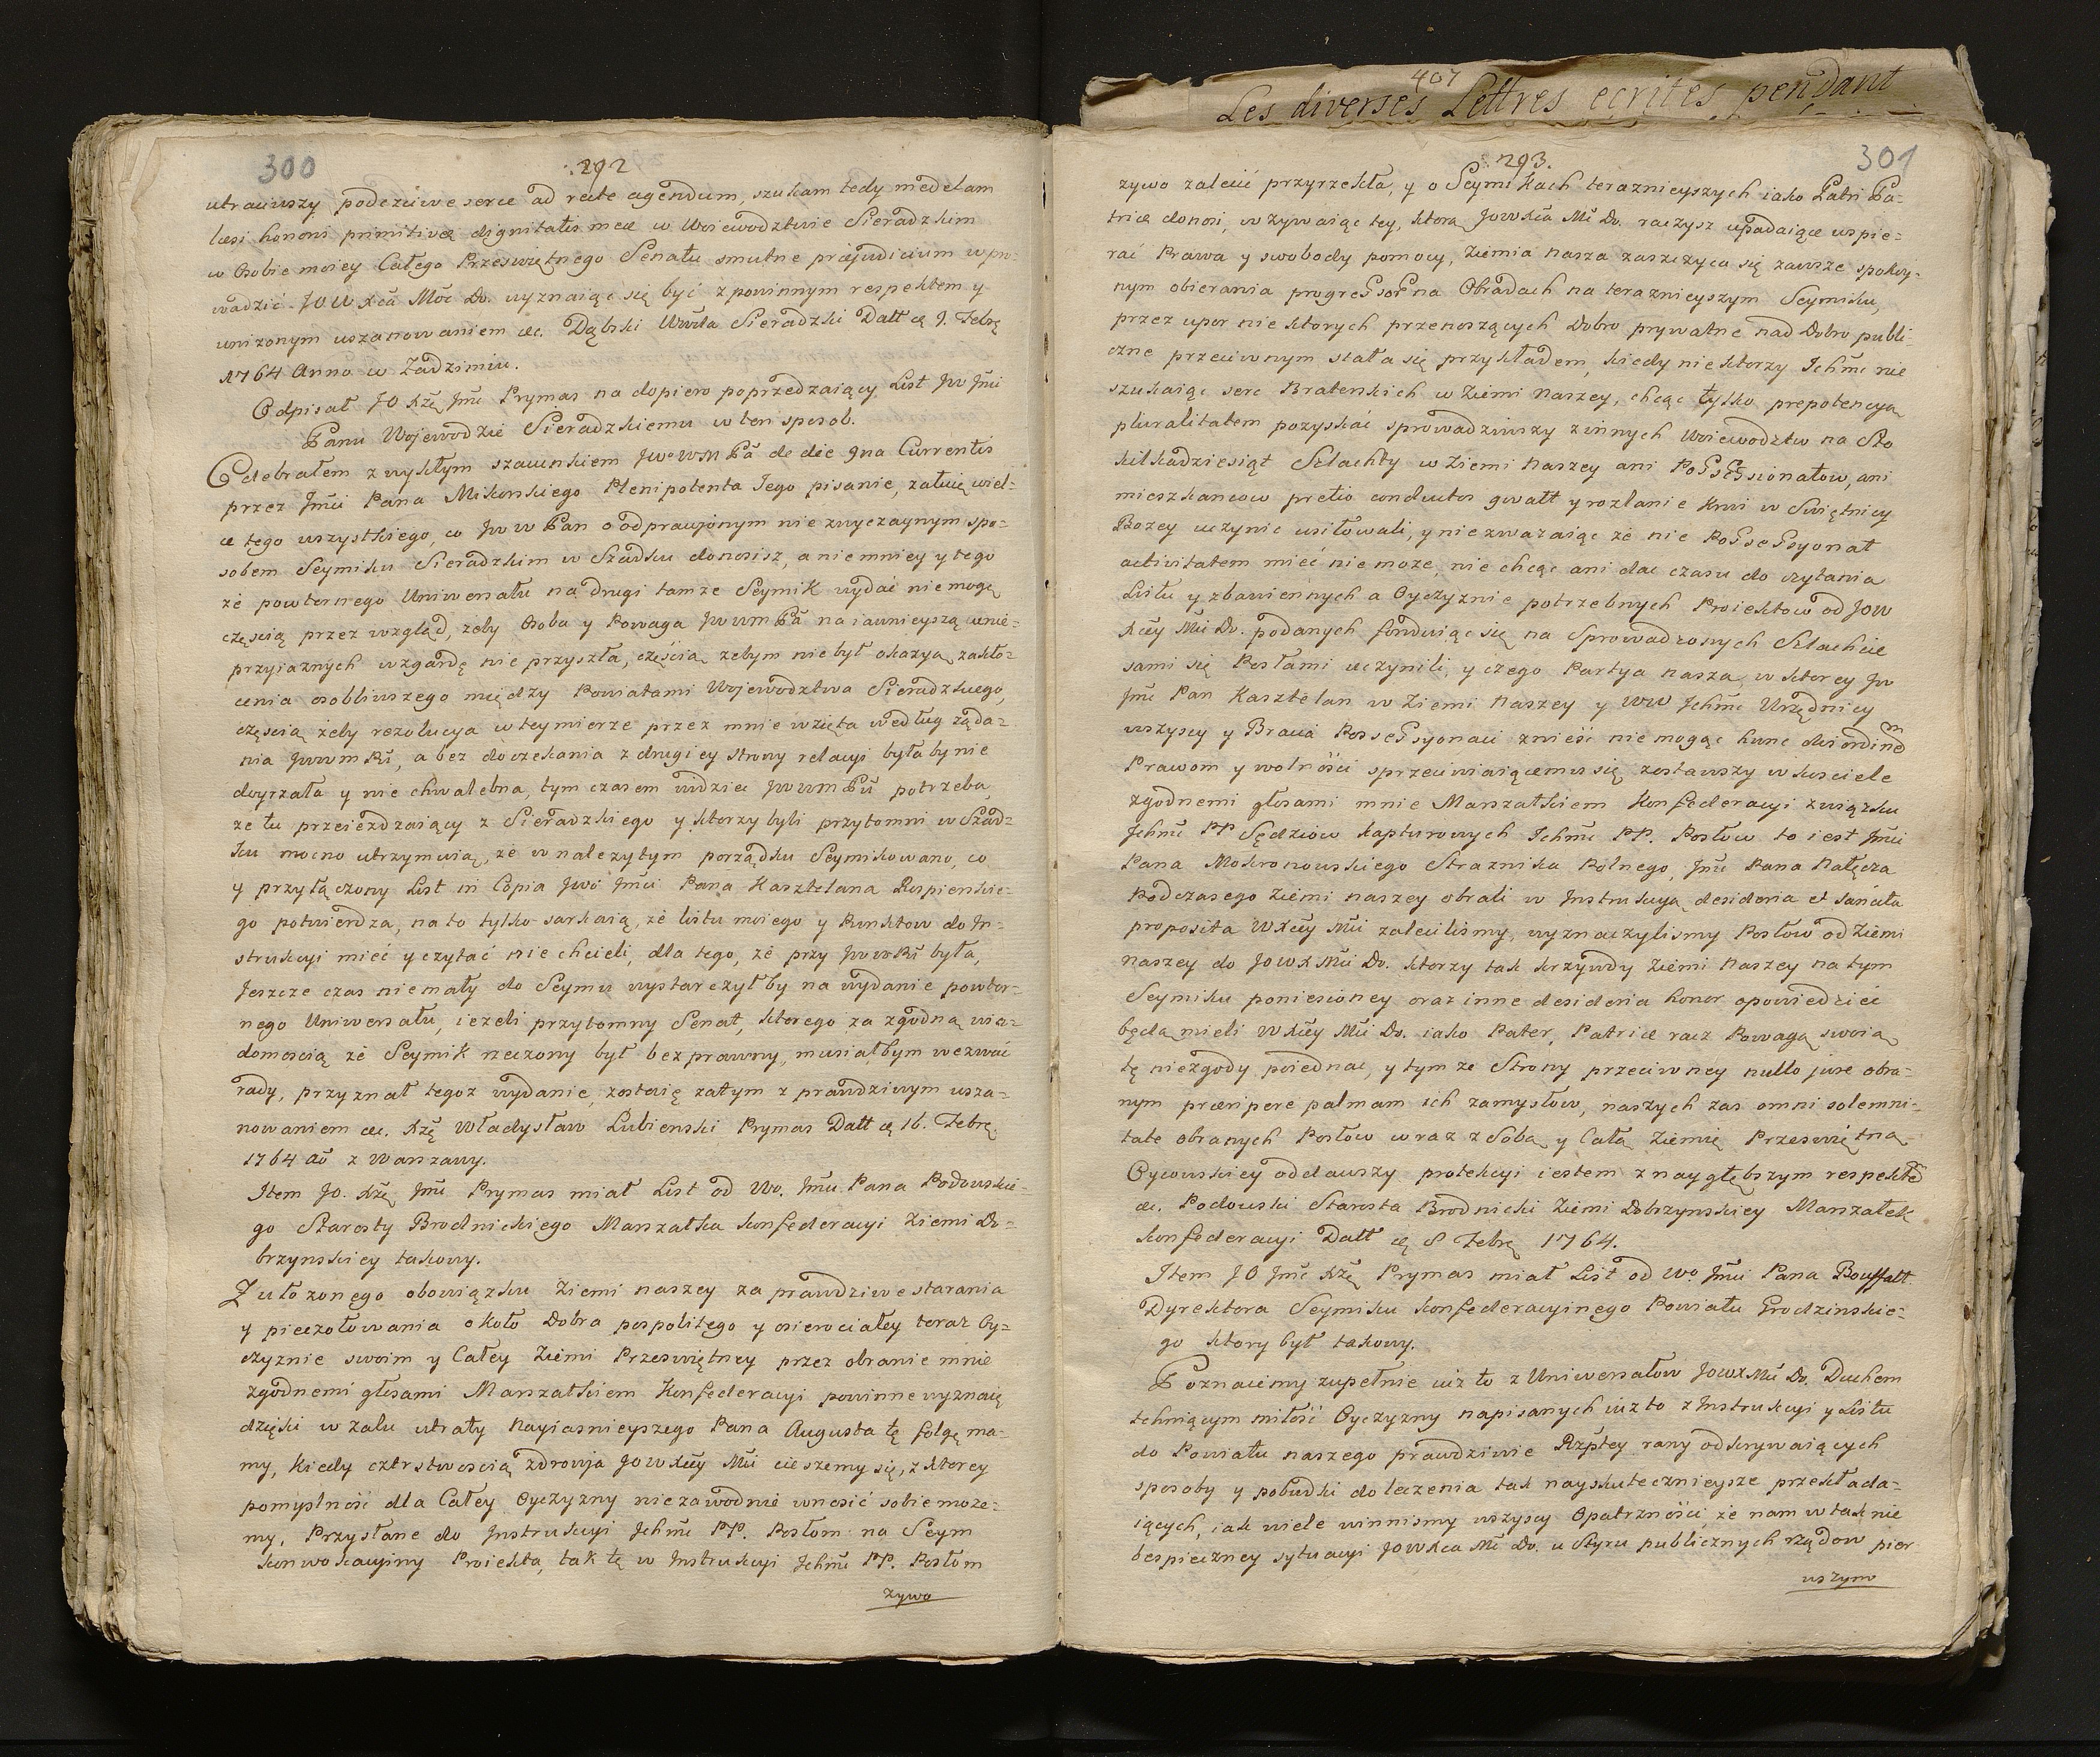 407
Les diverses Lettres ecrites pendant
300
292
utraciwszy podczciwe serce ad recte agendum, szukam tedy medelam
læsi honoris primitivæ dignitatis meæ w Woiewodztwie Sieradzkim
w Osobie moiey Całego Przeswiętnego Senatu smutne præjudicium wpro-
wadzić. JOWXcia Mści Do. wyznaiąc się być z powinnym respektem y
unizonym uszanowaniem &c. Dąbski Wwda Sieradzki Datt æ 9. Febrę
1764 Anno w Zadzimiu.
Odpisał JO Xżę Jmć Prymas na dopiero poprzedzaiący List Jw Jmći
Panu Wojewodzie Sieradzkiemu w ten sposob.
Odebrałem z wykłym szacunkiem JwoWM Pa de die 9na Currentis
przez Jmći Pana Mikorskiego Plenipotenta Jego pisanie, załuię wiel-
ce tego wszystkiego, co Jww Pan o odprawionym nie zwyczaynym spo-
sobem Seymiku Sieradzkim w Szadku donosisz, a niemniey y tego
że powtornego Uniwersału na drugi tamze Seymik wydać niemogę
częscią przez wzgląd, zeby Osoba y Powaga Jwwm Pa na iawnieyszą nie-
przyiaznych wzgardę nie przyszła, częścią zebym nie był okazyą zakło-
cenia osobliwszego między Powiatami Wojewodztwa Sieradzkiego,
częscią żeby rezolucya w teymierze przez mnie wzięta według żąda-
nia Jwwm Pi, a bez doczekania z drugiey strony relacyi byłaby nie
doyrzała y nie chwalebna, tym czasem widziec Jwwm Pu potrzeba,
ze tu przeiezdzaiący z Sieradzkiego y ktorzy byli przytomni w Szad-
ku mocno utrzymuią, że w nalezytym porządku Seymikowano, co
y przyłączony List in Copia Jwo Jmći Pana Kasztelana Rospierskie-
go potwierdza, na to tylko sarkaią, że listu moiego y Punktow do In-
strukcyi mieć y czytać nie chcieli, dla tego, że przy JwwPi była,
Jeszcze czas niemały do Seymu wystarczył by na wydanie powtor-
nego Uniwersału, iezeli przytomny Senat, ktorego za zgodną wia-
domoscią że Seymik rzeczony był bezprawny, musiałbym wezwać
rady, przyznał tegoz wydanie, zostaię zatym z prawdziwym usza-
nowaniem &c. Xżę Władysław Lubienski Prymas Datt æ 16. Febrę.
1764 Ao z Warszawy.
Item JO. Xżę Jmć Prymas miał List od Wo. Jmći Pana Podoskie-
go Starosty Brodnickiego Marszałka konfederacyi Ziemi Do-
brzynskiey takowy.
Z ułozonego obowiązku Ziemi naszey za prawdziwe starania
y pieczołowania około Dobra pospolitego y osierociałey teraz Oy-
czyznie swoim y Całey Ziemi Przeswiętney przez obranie mnie
zgodnemi głosami Marszałkiem Konfederacyi powinne wyznaię
dzięki w zalu utraty Nayiasnieyszego Pana Augusta tę folgę ma-
my, kiedy czerstwoscią zdrowja JOWXcey Mći cieszemy się, z ktorey
pomyslność dla Całey Oyczyzny niezawodnie wnosić sobie może-
my, Przysłane do Instrukcyi Jchmć PP. Posłom na Seym
konwokacyiny Proiekta, tak tę w Instrukcyi Jchmć PP. Posłom
zywo
293.
301
zywo zalecić przyrzekła, y o Seymikach teraznieyszych iako Patri Pa-
triæ donosi, wzywaiąc tey, ktorą JOWXcia Mć Do. raczysz upadaiące wspie-
rać Prawa y swobody pomocy, Ziemia nasza zaszczyca się zawsze spokoy-
nym obierania progressorna Obradach na teraznieyszym Seymiku,
przez upor niektorych przenoszących Dobro prywatne nad Dobro publi-
czne przeciwnym stała się przykładem, kiedy niektorzy Ichmć nie
szukaiąc serc Braterskich w Ziemi naszey, chcąc tylko prepotencyą
pluralitatem pozyskać sprowadziwszy z innych Woiewodztw na Sto
kilkadziesiąt Szlachty w Ziemi naszey ani Possessionatow, ani
mieszkancow pretio conductos gwałt y rozlanie krwi w Swiętnicy
Bozey uczynic usiłowali, y niezwazaiąc że nie Possessyonat
activitatem mieć niemoże, nie chcąc ani dac czasu do czytania
Listu y zbawiennych a Oyczyznie potrzebnych Proiektow od JOW
Xcey Mći Do. podanych funduiąc się na Sprowadzonych Szlachcie
sami się Posłami uczynili, y czego Partya nasza, w ktorey Jw
Jmć Pan Kasztelan w Ziemi naszey y WW Jchmć Urzędnicy
wszyscy y Bracia Possessyonaci znieść niemogąc hunc disordinem
Prawom y wolności sprzeciwiaiącemu się zostawszy w kosciele
zgodnemi głosami mnie Marszałkiem Konfederacyi związku
Jchmć PP Sędziow kapturowych Ichmć PP. Posłow to iest Jmći
Pana Mokronowskiego Straznika Polnego, Jmć Pana Nałęcza
Podczasego Ziemi naszey obrali w Instrukcyą desideria et sancita
proposita WXcey Mći zaleciliśmy, wyznaczylismy Posłow od Ziemi
naszey do JOWX Mći Do. ktorzy tak krzywdy Ziemi naszey na tym
Seymiku poniesioney oraz inne desideria honor opowiedzieć
będą mieli WXcey Mći Do. iako Pater, Patriæ racz Powagą swoią
tę niezgody poiednac, y tym ze Strony przeciwney nullo jure obra-
nym præripere palmam ich zamysłow, naszych zas omni solemni-
tate obranych Posłow wraz z Sobą y Całą Ziemię Przeswiętną
Oycowskiey oddawszy protekcyi iestem z naygłębszym respektem
&c. Podoski Starosta Brodnicki Ziemi Dobrzynskiey Marszałek
konfederacyi Datt æ 8 Febrę 1764.
Item JO Jmć Xżę Prymas miał List od Wo Jmći Pana Bouffałł
Dyrektora Seymiku konfederacyinego Powiatu Grodzinskie-
go ktory był takowy.
Poznaiemy zupełnie iuż to z Uniwersałow JOWX Mći Do. Duchem
tchniącym miłość Oyczyzny napisanych iuż to z Instrukcyi y Listu
do Powiatu naszego prawdziwie Rzptey rany odkrywaiących
sposoby y pobudki do leczenia tak nayskutecznieysze przekłada-
iących, iak wiele winnismy wszyscy Opatrzności że nam w tak nie
bespieczney sytuacyi JOWXca Mć Do. u Styru publicznych rządow pier
wszym